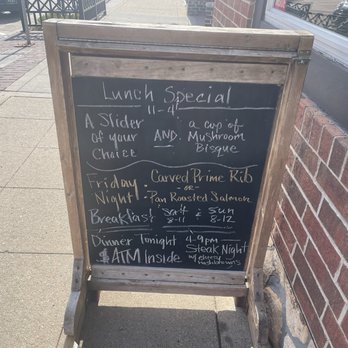 Lunch Special
11-4
A Slider AND a cup of
of your Mushroom
Choice Bisque
Friday Carved Prime Rib
Night -OR-
Pan Roasted Salmon
Breakfast Sat & Sun
8-11 8-12
Dinner Tonight 4-9pm
$ ATM Inside Steak Night